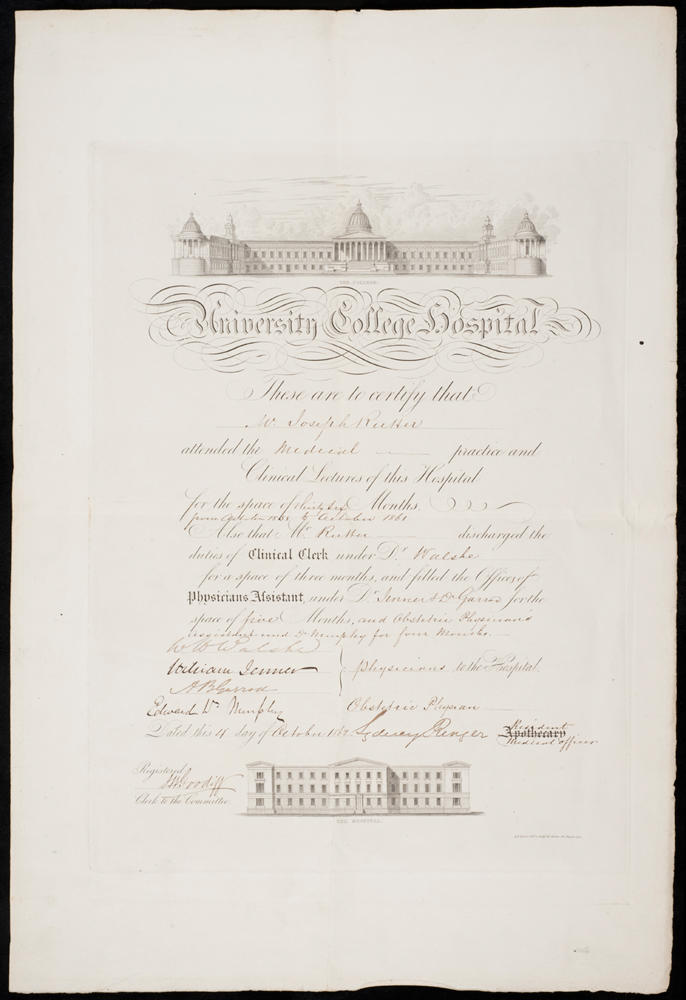 THE COLLEGE.
University College Hospital
These are to certify that
Mr Joseph Rutter
attended the Medical practice and
Clinical Lectures of this Hospital
for the space of Months,
from October to October 1861
Also that Mr Rutter discharged the
duties of Clinical Clerk under Dr Walshe
for a space of three months, and filled the Office of
Physicians Assistant, under Dr Jenner & Dr Garrod for the
space of five Months, and Obstetric Physicians
assistant under Dr Murphy for four Months.
W H Walshe
William Jenner Physicians to the Hospital.
A B Garrod
Edward Wm Murphy Obstetric Physician
Dated this 4 day of October Sydney Ringer Resident
Apothecary
Medical Officer
Registered
Clerk to the Committee.
THE HOSPITAL.